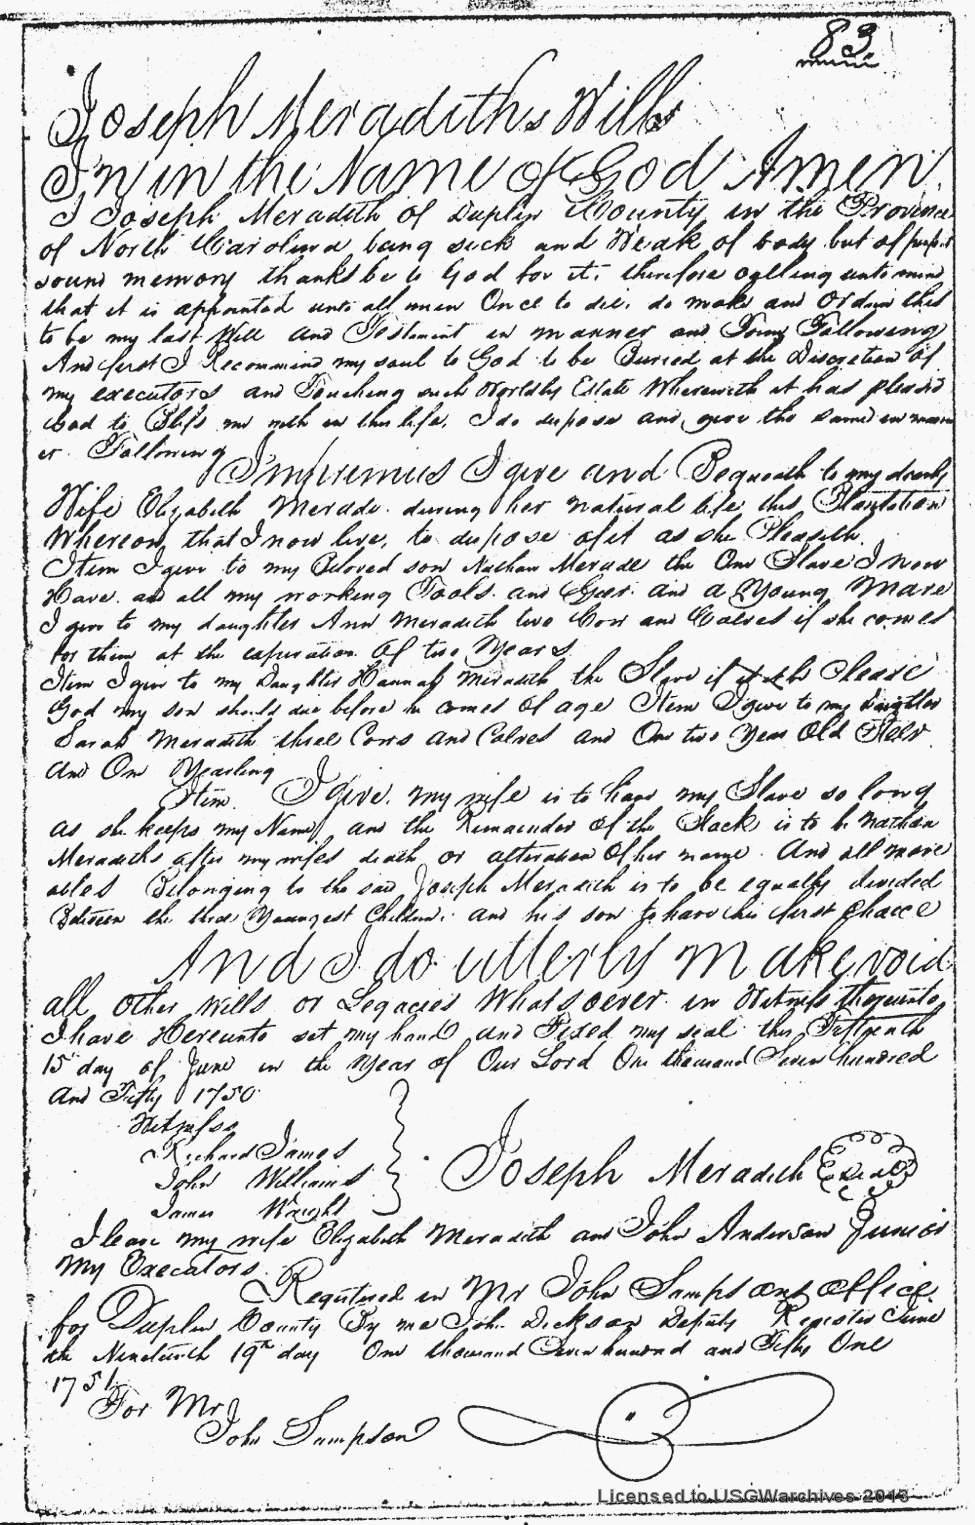 83
Joseph Meradiths Will
I'n in the Name of God Amen
I Joseph Meradith of Duplin County in the Province
of North Carolina being sick and Weak of body but of perfect
sound memory thanks be to God for it, therefore calling unto mind
that it is appointed unto all men Once to die, do make and Ordain this
to be my last Will and Testament in manner and Form Following
And first I Recommend my soul to God to be Buried at the Discretion of
my executors and Touching such Worldly Estate Wherewith it has pleasd
God to Bless me with in this life, I do dispose and give the same in mann
er Following Impremus I give and Bequeath to my dearly
Wife Elizabeth Merade during her natural life this Plantation
Whereon that I now live, to dispose of it as she Pleaseth.
Item I give to my Beloved son Nathan Merade the One Slave I now
Have and all my working Tools and Geer and a Young Mare
I give to my daughter Ann Meradith two Cows and Calves if she comes
for them at the expiration Of two Years
Item I give to my Daughter Hannah Meradith the Slave if it Please
God my son should die before he comes Of age Item I give to my Daughter
Sarah Meradith three Cows and Calves and One two Year Old Heifr
And One Yearling
Item I give, my wife is to have my Slave so long
as she keeps my Name, and the Remainder of the Stock is to be Nathan
Meradiths after my wifes death or alteration Of her name. And all move
ables Belonging to the said Joseph Meradith is to be equally divided
Between the three Youngest Children; and his son to have his first Choice
And I do utterly make void
all other Wills or Legacies Whatsoever in Witness thereunto
I have Hereunto set my hand and Fixed my seal this Fifteenth
15 day of June in the Year of Our Lord One thousand Seven hundred
And Fifty 1750
Witness
Richard James
John Williams
James Wright
Joseph Meradith
I leave my wife Elizabeth Meradith and John Anderson Junior
My Executors.
Registered in Mr John Sampsons Office
for Duplin County By me John Dickson Deputy Register June
the Nineteenth 19th day One thousand Seven hundred and Fifty One
1751
For Mr
John Sampson
Licensed to USGWarchives 2013